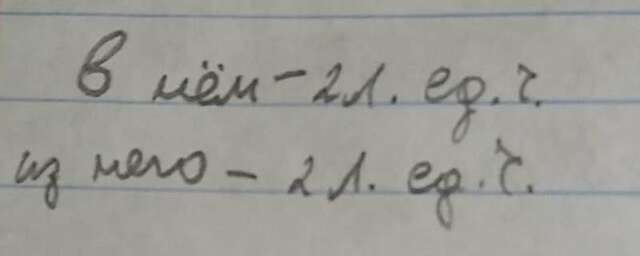 в нём - 2 л. ед. ч.
из него - 2 л. ед. ч.